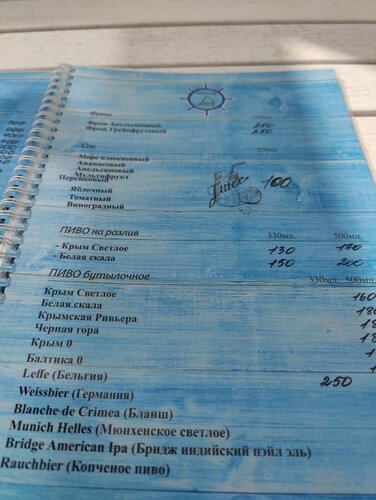 Фреши
Фреш Апельсиновый 250
Фреш Грейпфрутовый 250
Сок 250мл.
Морс клюквенный
Ананасовый
Апельсиновый
Мультифрукт
Персиковый
Яблочный
Томатный
Виноградный
Juice 100
ПИВО на разлив 330мл. 500мл.
- Крым Светлое 130 170
- Белая скала 150 200
ПИВО бутылочное 330мл. 500мл.
Крым Светлое 160
Белая скала
Крымская Ривьера
Черная гора
Крым 0
Балтика 0
Leffe (Бельгия) 250
Weissbier (Германия)
Blanche de Crimea (Бланш)
Munich Helles (Мюнхенское светлое)
Bridge American Ipa (Бридж индийский пэйл эль)
Rauchbier (Копченое пиво)